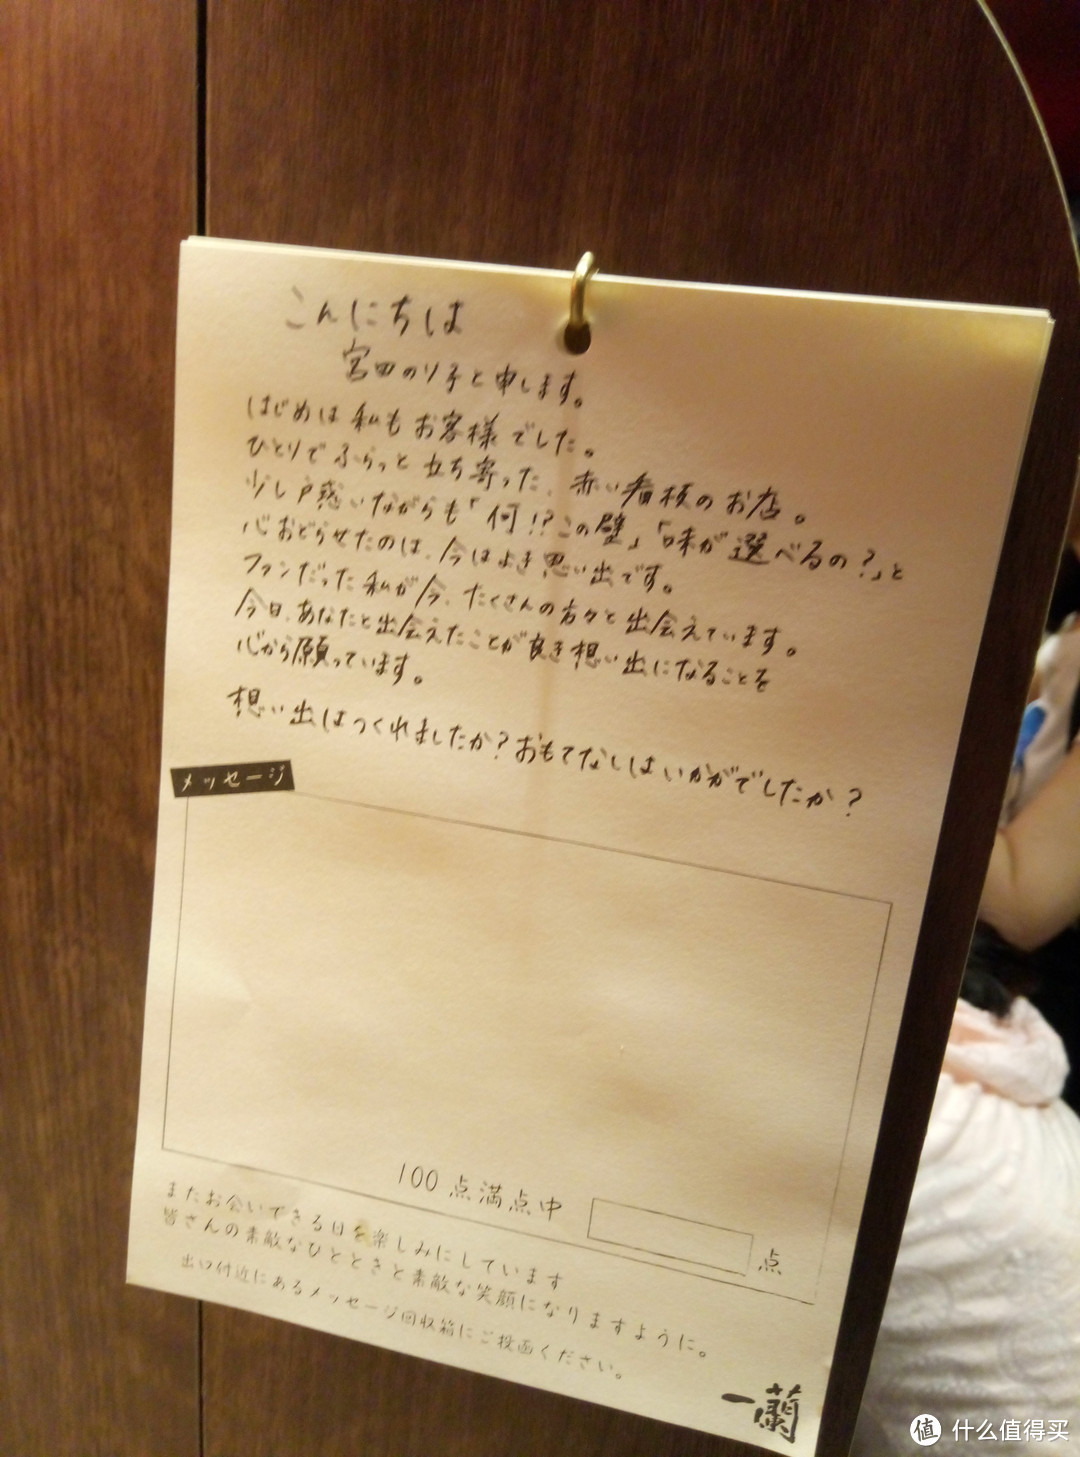 こんにちは
宮田のり子と申します。
はじめは私もお客様でした。
ひとりでふらっと立ち寄った、赤い看板のお店。
少し戸惑いながらも「何!?この壁」「味が選べるの?」と
心おどらせたのは、今はよき思い出です。
ファンだった私が今、たくさんの方々と出会えています。
今日、あなたと出会えたことが良き想い出になることを
心から願っています。
想い出はつくれましたか?おもてなしはいかがでしたか?
メッセージ
100点満点中 点
またお会いできる日を楽しみにしています
皆さんの素敵なひとときと素敵な笑顔になりますように。
出口付近にあるメッセージ回収箱にご投函ください。
一蘭
值 什么值得买